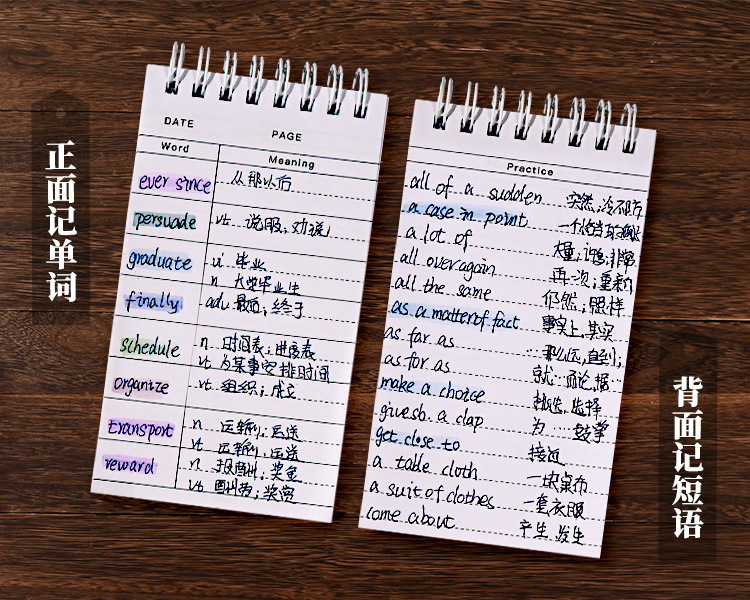 正面记单词
DATE PAGE
Word Meaning
ever since 从那以后
persuade vt. 说服，劝说
graduate vi 毕业
n 大学毕业生
finally adv 最后；终于
schedule n. 时间表；进度表
vt 为某事安排时间
organize vt. 组织；成立
transport n. 运输；运送
vt. 运输；运送
reward n. 报酬；奖金
vt. 酬劳；奖赏
Practice
all of a sudden 突然；冷不防
a case in point 一个恰当的
a lot of 大量；许多；非常
all over again 再一次；重新
all the same 仍然；照样
as a matter of fact 事实上，其实
as far as 那么远，直到；
as for as 就…而论，据…
make a choice 挑选，选择
give sb. a clap 为…鼓掌
get close to 接近
a table cloth 一块桌布
a suit of clothes 一套衣服
come about 产生，发生
背面记短语